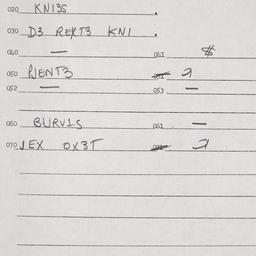 020 KNI3S .
030 D3 REXT3 KNI .
040 — 041 $
050 PJENT3
052 — 053 —
060 BURV1S 061 —
070 JEX OX3T